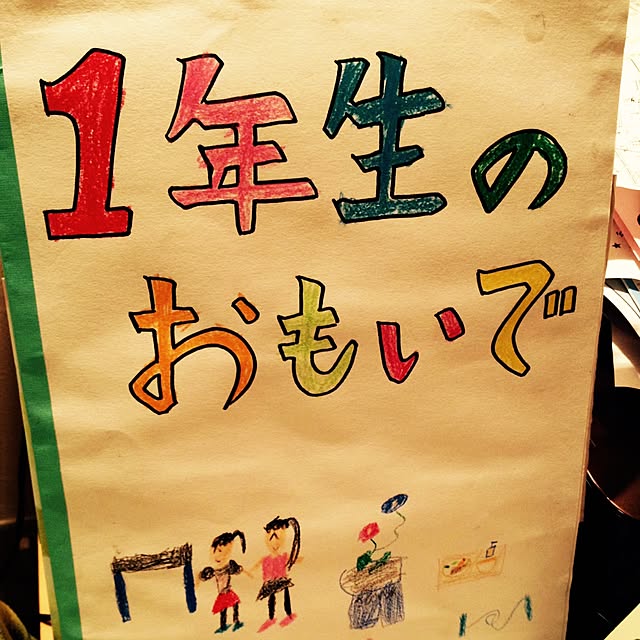 1年生の
おもいで